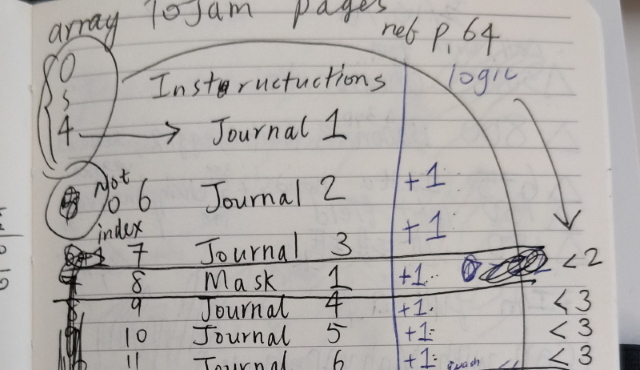 array 10 Jam pages
ref p. 64
0 Instructuctions logic
5
4 Journal 1
Not 0 index
6 Journal 2 +1
7 Journal 3 +1
8 Mask 1 +1 <2
9 Journal 4 +1 <3
10 Journal 5 +1 <3
11 Journal 6 +1 <3